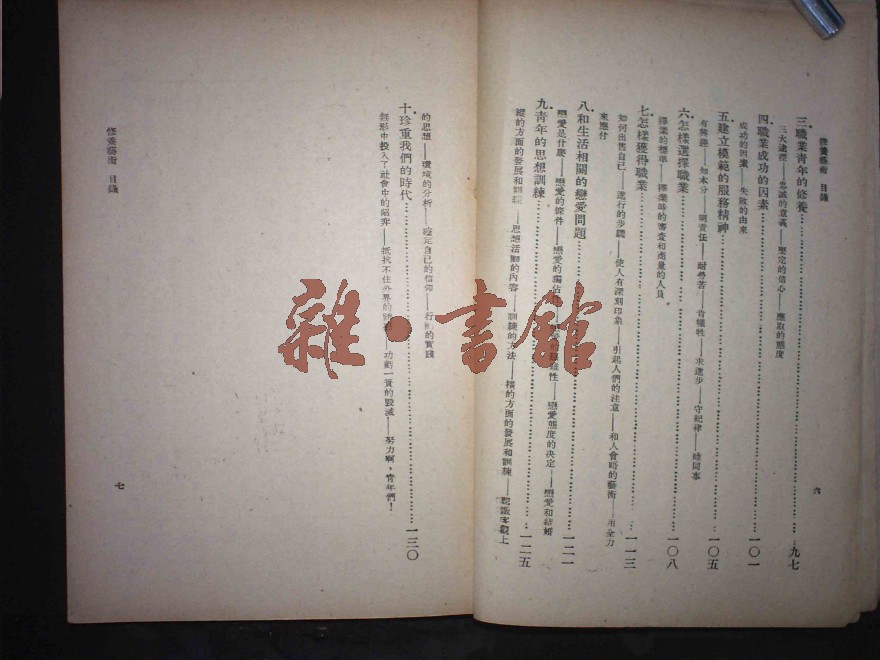 修養藝術 目錄
三 職業青年的修養 九七
三大途徑——忠誠的意義——堅定的信心——應取的態度
四 職業成功的因素 一〇一
成功的因素——失敗的由來
五 建立模範的服務精神 一〇五
有興趣——知本分——明責任——耐勞苦——肯犧牲——求進步——守紀律——睦同事
六 怎樣選擇職業 一〇八
擇業的標準——擇業時的審查和商量的人員。
七 怎樣獲得職業 一一三
如何出售自己——進行的步驟——使人有深刻印象——引起人們的注意——和人會時的藝術——用全力
來應付
八 和生活相關的戀愛問題 一二一
戀愛是什麼——戀愛的條件——戀愛的獨佔性——戀愛態度的決定——戀愛和結婚
九 青年的思想訓練 一二五
縱的方面的發展和訓練——思想活動的內容——訓練的方法——橫的方面的發展和訓練——認識客觀上
六
的思想——環境的分析——確定自己的信仰——行動的實踐
十 珍重我們的時代 一三〇
無形中投入了社會中的陷阱——抵抗不住外界的——功虧一簣的毀滅——努力啊,青年們!
修養藝術 目錄
七
雜·書館